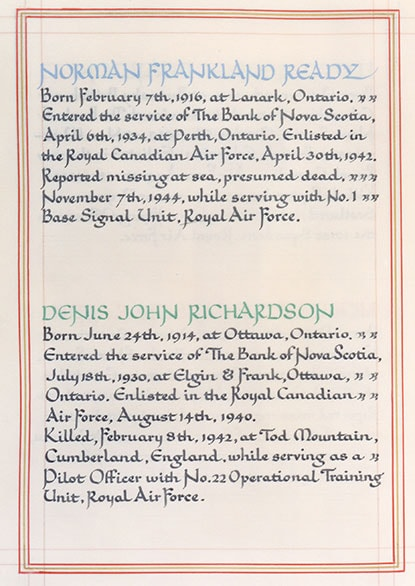 NORMAN FRANKLAND READY
Born February 7th, 1916, at Lanark, Ontario.
Entered the service of The Bank of Nova Scotia,
April 6th, 1934, at Perth, Ontario. Enlisted in
the Royal Canadian Air Force, April 30th, 1942.
Reported missing at sea, presumed dead,
November 7th, 1944, while serving with No. 1
Base Signal Unit, Royal Air Force.
DENIS JOHN RICHARDSON
Born June 24th, 1914, at Ottawa, Ontario.
Entered the service of The Bank of Nova Scotia,
July 18th, 1930, at Elgin & Frank, Ottawa,
Ontario. Enlisted in the Royal Canadian
Air Force, August 14th, 1940.
Killed, February 8th, 1942, at Tod Mountain,
Cumberland, England, while serving as a
Pilot Officer with No. 22 Operational Training
Unit, Royal Air Force.